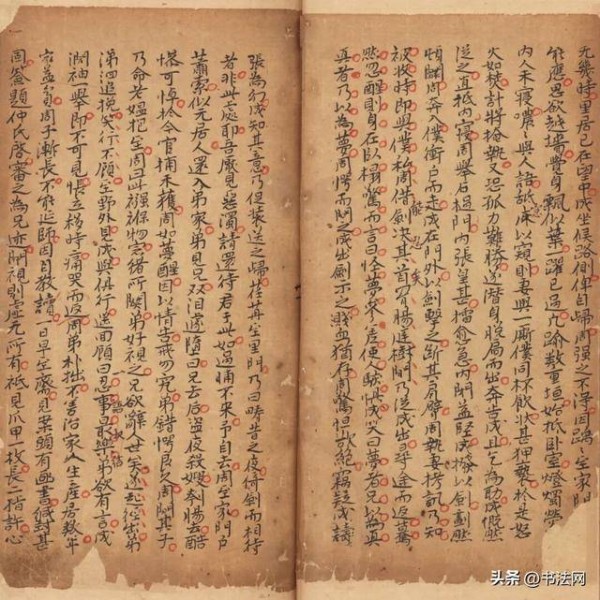 无幾時里居已在望中成坐候路側俾自歸周强之不得因踽踽至家門叩不
能應思欲越墻覺身飄似葉一躍已過凡踰數重垣始抵臥室燈燭熒然
內人未寢噥噥與人語舐牕以窺則妻與一厮僕同杯飲狀甚狎褻於是怒
火如焚計將掩執又恐孤力難勝遂潛身脫扃而出奔告成且乞為助成慨然
從之直抵內寢周舉石撾門內張皇甚擂愈急內閉益堅成撥以劍劃然
頓闢周奔入僕衝戶而走成在門外以劍擊之斷其肩臂周執妻拷訊乃知
被收時即與僕私周借劍決其首罥腸庭樹間乃從成出尋途而返驀
然忽醒則身在臥榻驚而言曰怪夢參差使人駭懼成笑曰夢者兄以為真
真者乃以為夢周愕而問之成出劍示之濺血猶存周驚怛欲絕竊疑成譸
張為幻成知其意乃促裝送之歸荏苒至里門乃曰疇昔之夜倚劍而相待
者非此處耶吾厭見惡濁請還待君于此如過晡不來予自去周至家門戶
蕭索似无居人還入弟家弟見兄双泪遽墮曰兄去后盜夜殺嫂刳腸去酷
慘可悼於今官捕未獲周如夢醒因以情告戒勿究弟錯愕良久周問其子
乃命老媪抱至周曰此襁褓物宗緒所關弟好視之兄欲辭人世矣遂起徑去弟
涕泗追挽笑行不顧至野外見成與俱行遥回顧曰忍事最樂弟欲有言成
濶袖一舉即不可見悵立移時痛哭而返周弟朴拙不善治家人生產居數年
家益貧周子漸長不能延師因自教讀一日早至齋見案頭有函書緘封甚
固簽題仲氏啓審之為兄迹開視則虛无所有祇見爪甲一枚長二指許心
頭条 @书法网